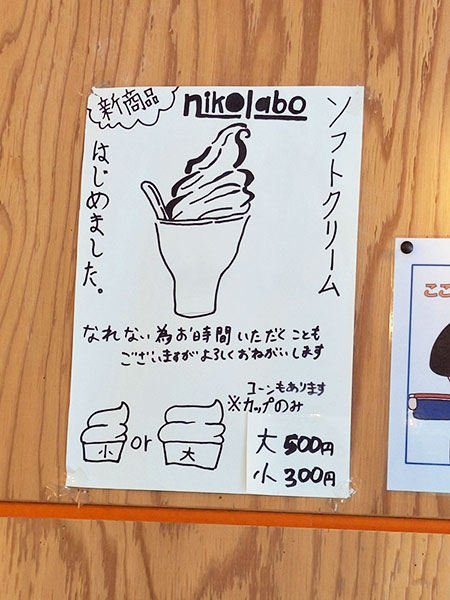 新商品
nikolabo
ソフトクリーム
はじめました。
なれない為お時間いただくことも
ございますがよろしくおねがいします
コーンもあります
※カップのみ
小 or 大
大 500円
小 300円
ここ